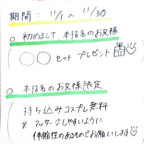 期間: 11/1 〜 11/30
○ 初めまして 本指名のお客様
○○セット プレゼント
○ 本指名のお客様限定
持ち込みコスプレ無料
※マッサージしやすいように
伸縮性のあるものでお願いします